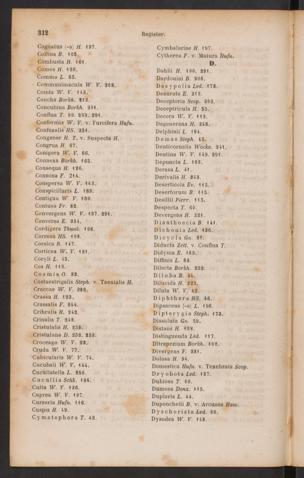 312
Register.
Cognatus (-a) H. 197.
Collina B. 105.
Combusta H. 161.
Comes H. 130.
Comma L. 83.
Communimacula W V. 202.
Comta W V. 143.
Concha Borkh. 212.
Concubina Borkh. 231.
Conflua T. 99. 283. 291.
Confusalis HS. 234.
Congener H. T. v. Suspecta H.
Congrua H. 67.
Conigera W V. 86.
Connexa Borkh. 163.
Consequa H. 126.
Consona F. 214.
Conspersa W V. 143.
Conspicillaris L. 189.
Contigua W V. 150.
Contusa Fr. 82.
Convergens W V. 137. 291.
Conversa E. 234.
Cordigera Thunb. 196.
Corrosa HS. 108.
Corsica B. 147.
Corticea W V. 121.
Coryli L. 45.
Cos H. 112.
Cosmia, O. 82.
Costaestrigalis Steph. v. Taenialis H.
Craccae W V. 205.
Crassa H. 123.
Crassalis F. 234.
Cribralis H. 242.
Crinalis T. 242.
Cristulalis H. 258.
Cristulana D. 256. 259.
Croceago W V. 92.
Cruda W V. 77.
Cubicularis W V. 74.
Cucubali W V. 144.
Cuculatella L. 256.
Cucullia Schk. 184.
Culta W V. 136.
Cuprea W V. 107.
Cursoria Hufn. 116.
Cuspis H. 49.
Cymatophora T. 42.
Cymbalariae H. 197.
Cytherea F. v. Matura Hufn.
D.
Dahlii H. 100. 291.
Dardouini B. 206.
Dasypolia Led. 178.
Deaurata E. 212.
Deceptoria Scop. 203.
Deceptricula H. 55.
Decora W V. 112.
Degenerana H. 248.
Delphinii L. 194.
Demas Steph. 45.
Dentina W V. 149. 291.
Depuncta L. 103.
Derasa L. 41.
Derivalis H. 243.
Desertorum B. 115.
Desillii Pierr. 115.
Despecta T. 69.
Devergens H. 221.
Dianthoecia B. 141.
Dichonia Led. 136.
Dicycla Gn. 82.
Diducta Zett. v. Conflua T.
Didyma E. 163.
Diffinis L. 84.
Dilecta Borkh. 232.
Diloba B. 54.
Dilucida H. 223.
Diluta W V. 42.
Diphthera HS. 46.
Dipsaceus (-a) L. 196.
Dipterygia Steph. 173.
Dissoluta Gn. 59.
Distans H. 129.
Distinguenda Led. 117.
Ditrapezium Borkh. 102.
Divergens F. 221.
Dolosa H. 94.
Domestica Hufn. v. Tenebrosa Scop.
Dryobota Led. 137.
Dubiosa T. 69.
Dumosa Donz. 115.
Duplaris L. 44.
Duponchelii B. v. Arcuosa Haw.
Dyschorista Led. 88.
Dysodea W V. 148.